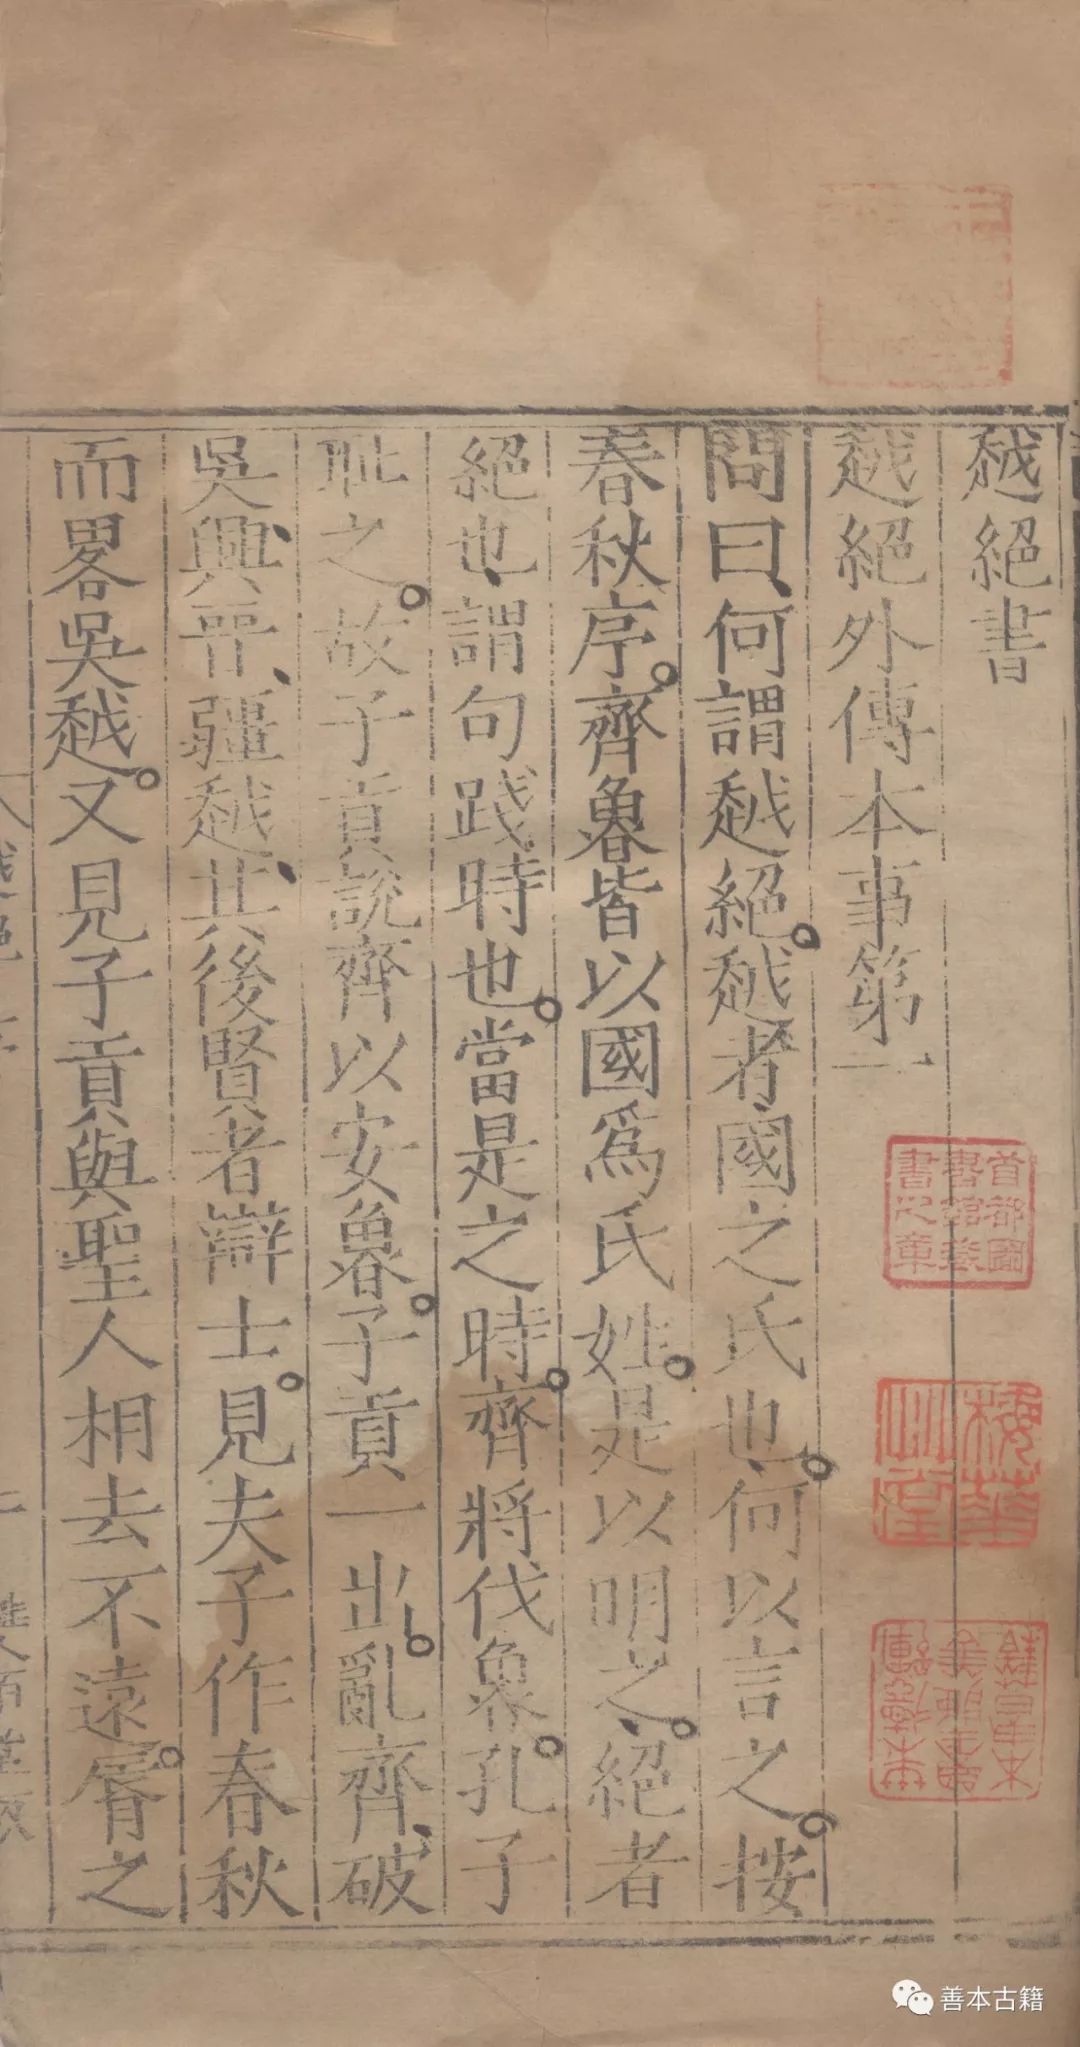 越絕書
越絕外傳本事第一
問曰、何謂越絕。越者國之氏也。何以言之。按
春秋序。齊魯皆以國爲氏姓。是以明之。絕者
絕也、謂句踐時也。當是之時。齊將伐魯。孔子
耻之。故子貢說齊以安魯。子貢一出。亂齊、破
吳、興晉、疆越、其後賢者辯士。見夫子作春秋
而畧吳越。又見子貢與聖人相去不遠。脣之
首都圖書館藏書之章
善本古籍